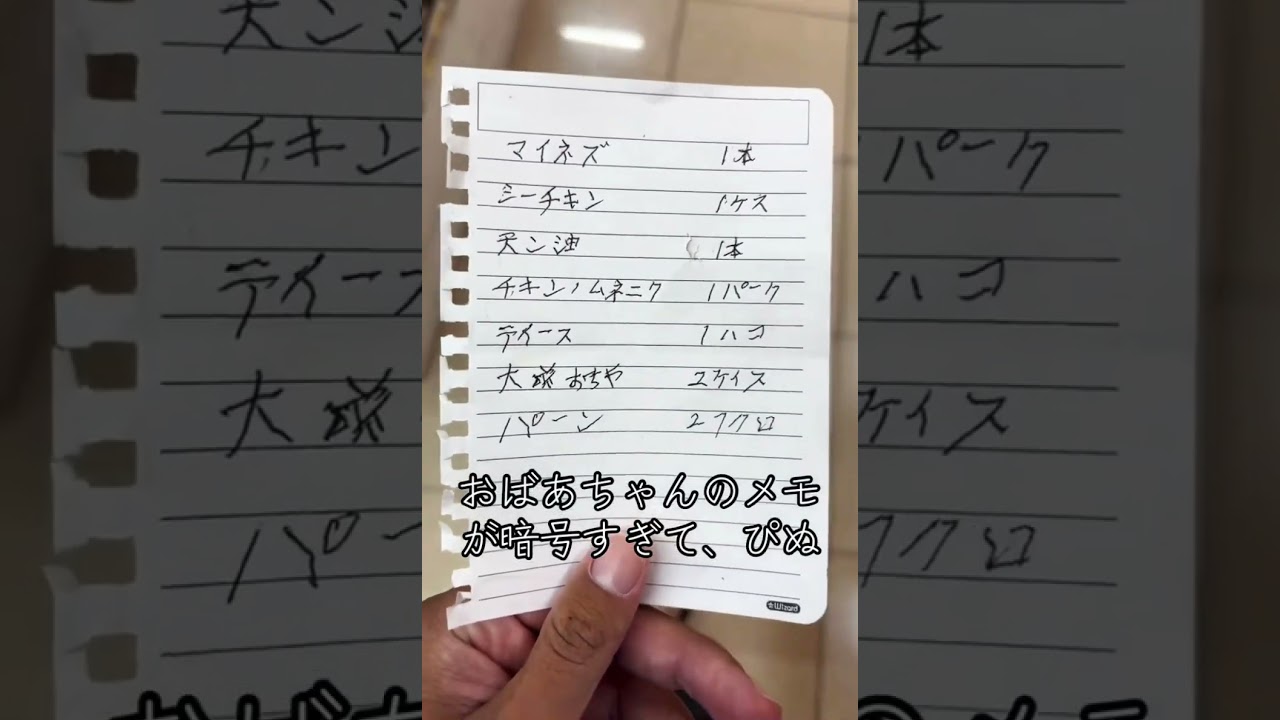 マイネズ 1本
シーチキン 1ケス
天ン油 1本
チキン、ムネニク 1パーク
テイース 1ハコ
大盛おちや 2ケイス
パーン 2フクロ
おばあちゃんのメモ
が暗号すぎて、ぴぬ
Wizard